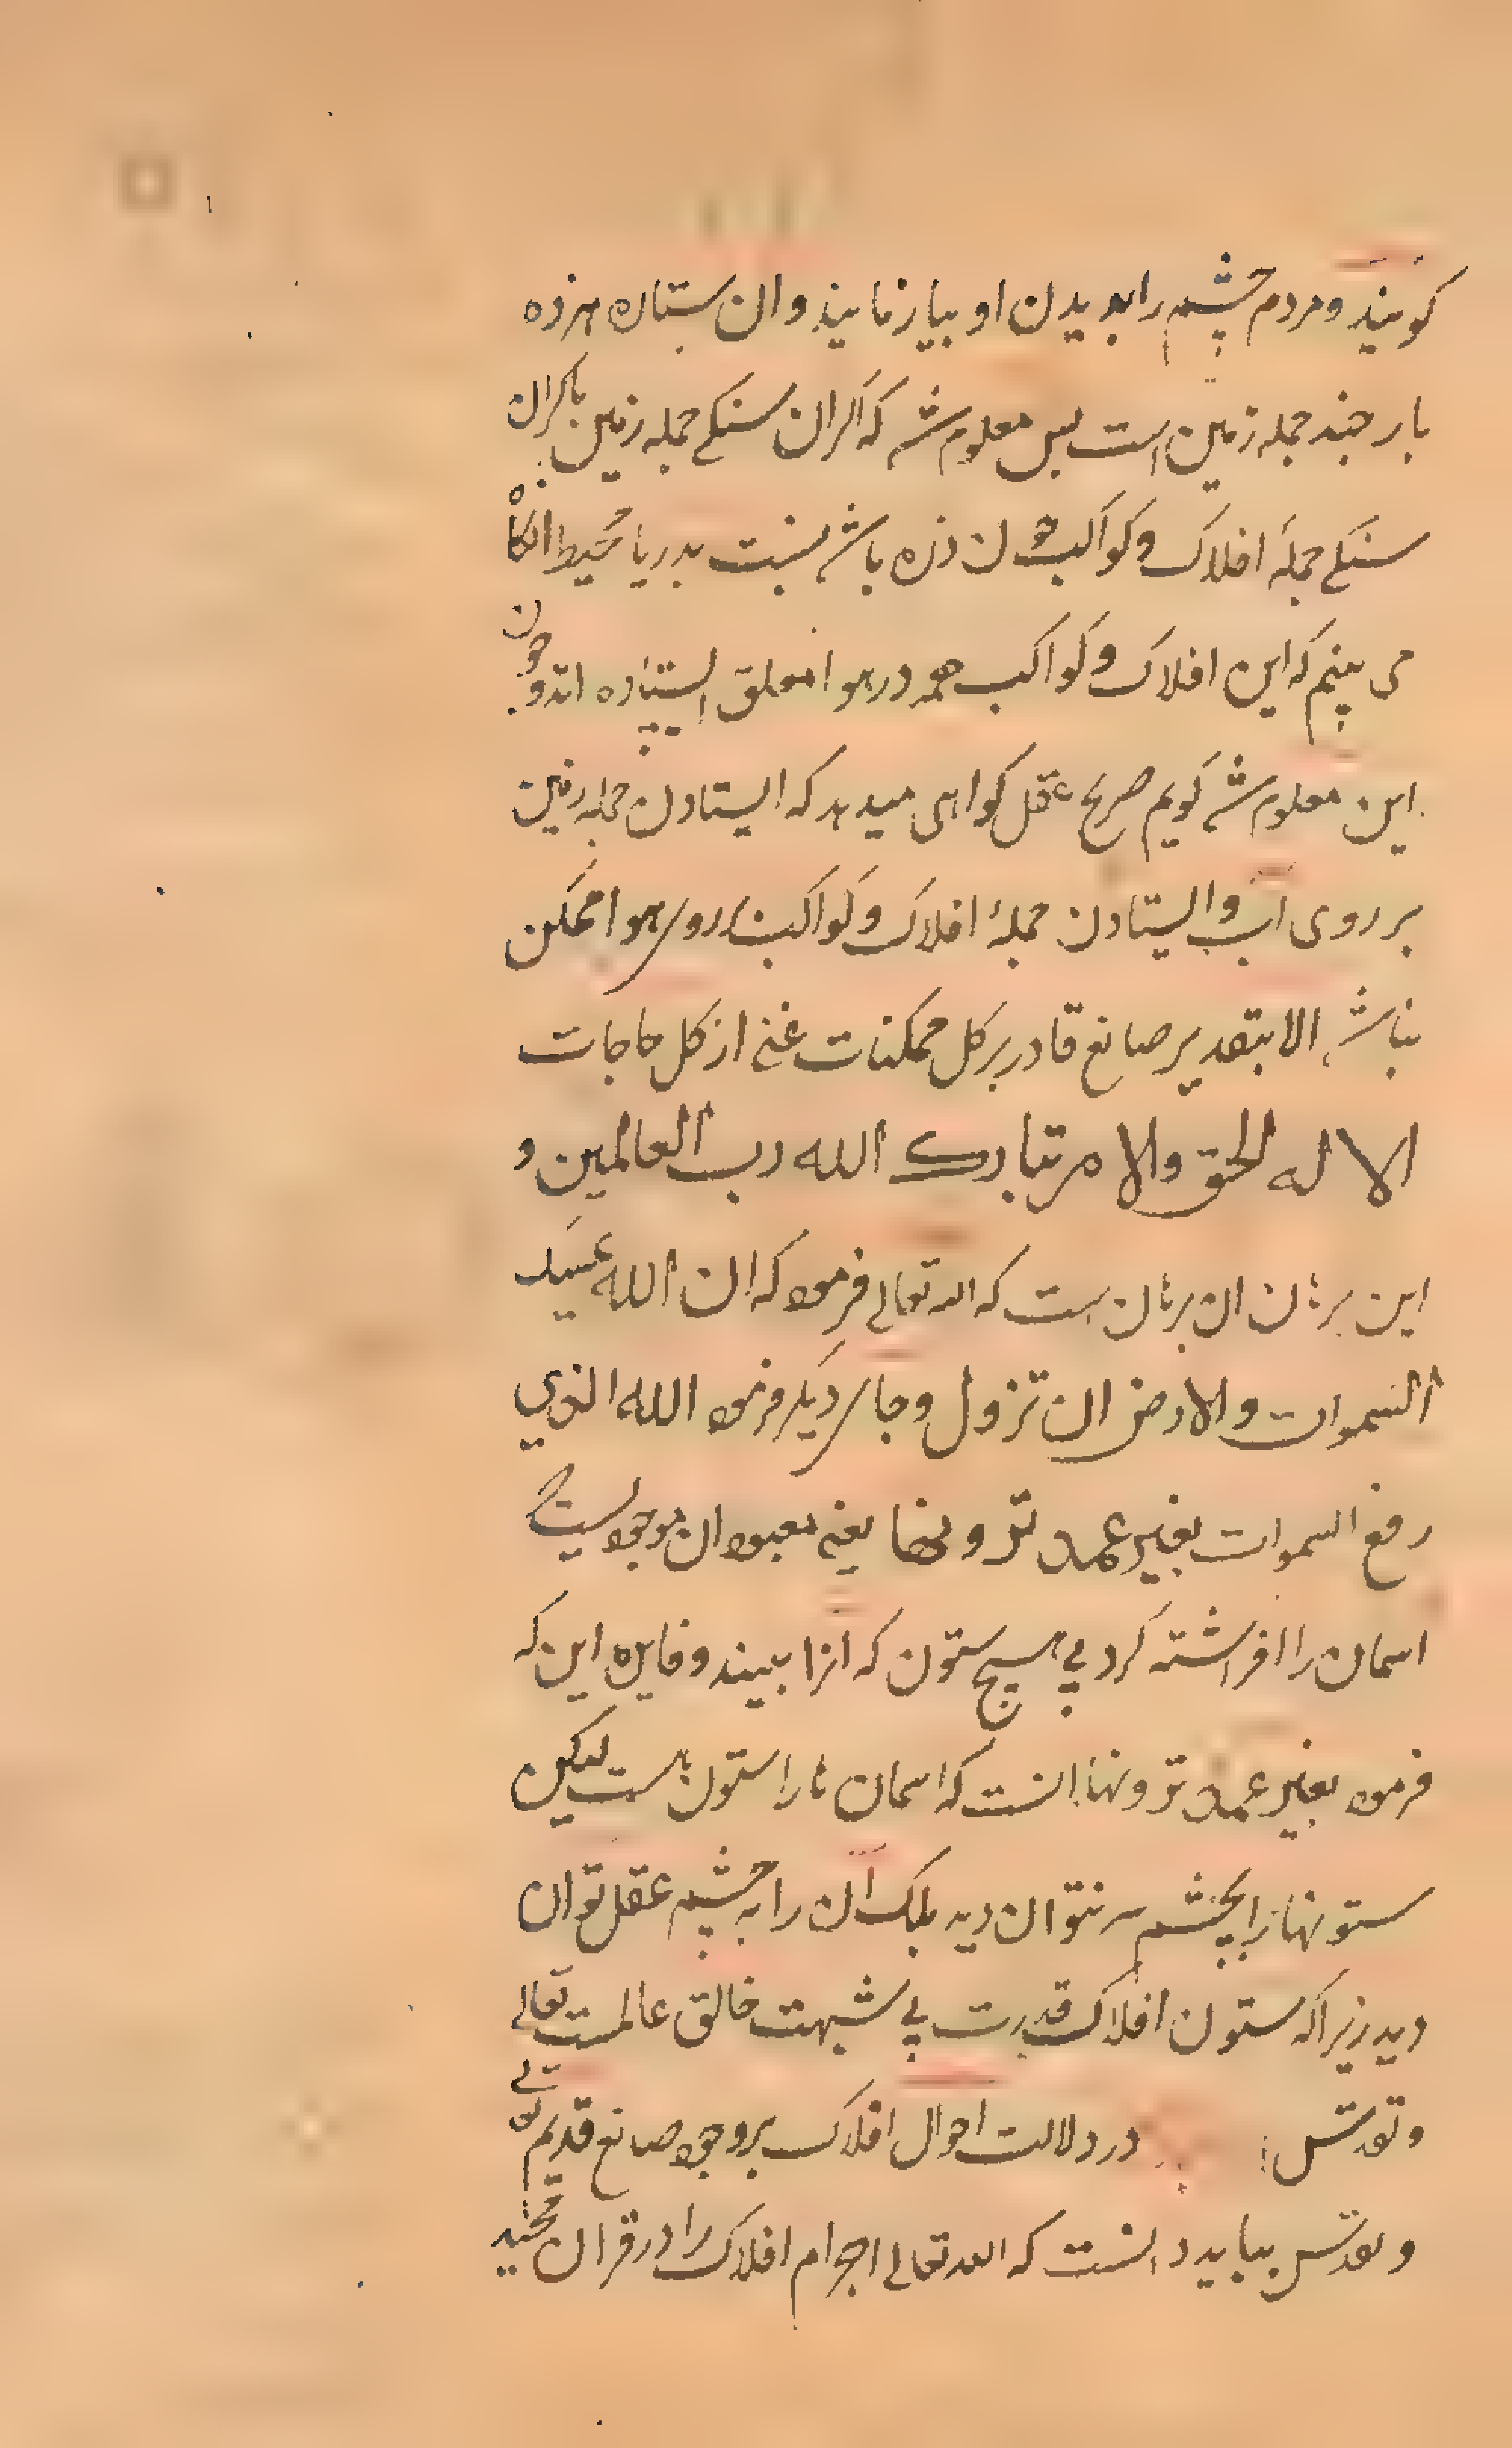 کویند و مردم چشم را بدیدن او بیازمایند و ان ستاره هزده
بار چند جمله زمین است پس معلوم شد که اکران سنکی جمله زمین باکران
سنکی جملهٔ افلاک و کواکب چون ذره باشد نسبت بدریا محیط انکاه
می بینم که این افلاک و کواکب همه در هوا معلق ایستاده اند و چون
این معلوم شد کویم صریح عقل کواهی میدهد که ایستادن جمله زمین
بر روی آب و ایستادن جملهٔ افلاک و کواکب بر روی هوا ممکن
نباشد الا بتقدیر صانع قادر بر کل ممکنات غنی از کل حاجات
الا له الخق والامر تبارک الله رب العالمین و
این برهان ان برهان است که الله تعالی فرمود که ان الله یمسک
السموات والارض ان تزول و جای دیکر فرمود الله الذی
رفع السموات بغیر عمد ترونها یعنی معبود ان موجودیست که
اسمان را افراشته کرد بی هیچ ستون که انرا ببیند و فایده این که
فرمود بغیر عمد ترونها انست که اسمان ها را ستون هست لیکن
ستونها را بچشم سر نتوان دید بلک آن را به چشم عقل توان
دید زیرا که ستون افلاک قدرت بی شبهت خالق عالمست تعالی
و تقدس در دلالت احوال افلاک بر وجود صانع قدیم تعالی
و تقدس بباید دانست که الله تعالی اجرام افلاک را در قران مجید